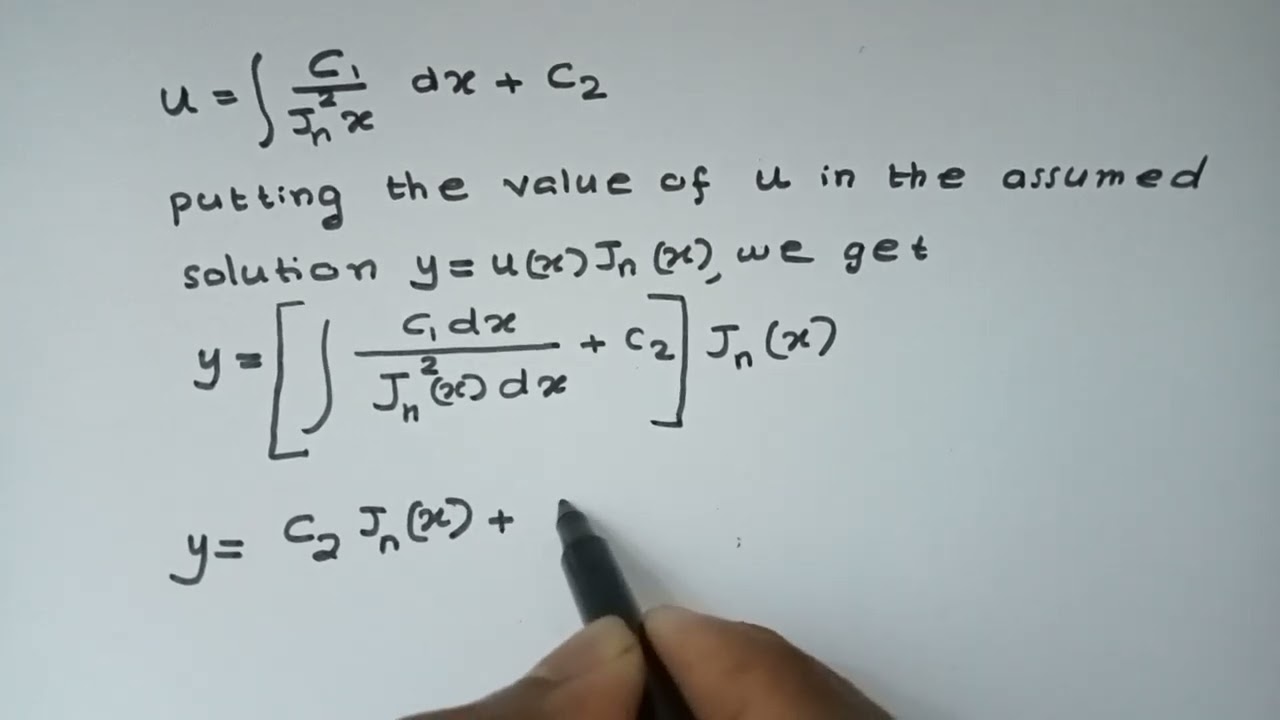 u = ∫ C₁/Jₙ²x dx + C₂
putting the value of u in the assumed
solution y = u(x) Jₙ(x), we get
y = [∫ C₁ dx/Jₙ²(x) dx + C₂] Jₙ(x)
y = C₂ Jₙ(x) +